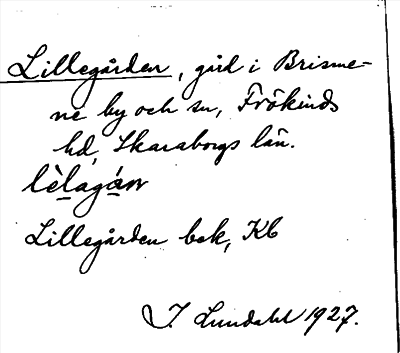 Lillegården, gård i Brisme-
ne by och sn, Frökinds
hd, Skaraborgs län.
lèlagá̱n
Lillegården bek, Kb
I. Lundahl 1927.